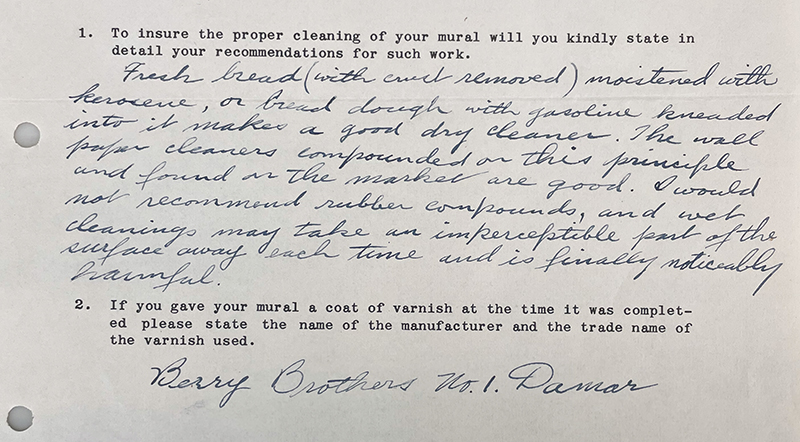 1. To insure the proper cleaning of your mural will you kindly state in
detail your recommendations for such work.
Fresh bread (with crust removed) moistened with
kerosene, or bread dough with gasoline kneaded
into it makes a good dry cleaner. The wall
paper cleaners compounded on this principle
and found on the market are good. I would
not recommend rubber compounds, and wet
cleanings may take an imperceptible part of the
surface away each time and is finally noticeably
harmful.
2. If you gave your mural a coat of varnish at the time it was complet-
ed please state the name of the manufacturer and the trade name of
the varnish used.
Berry Brothers No. 1. Damar